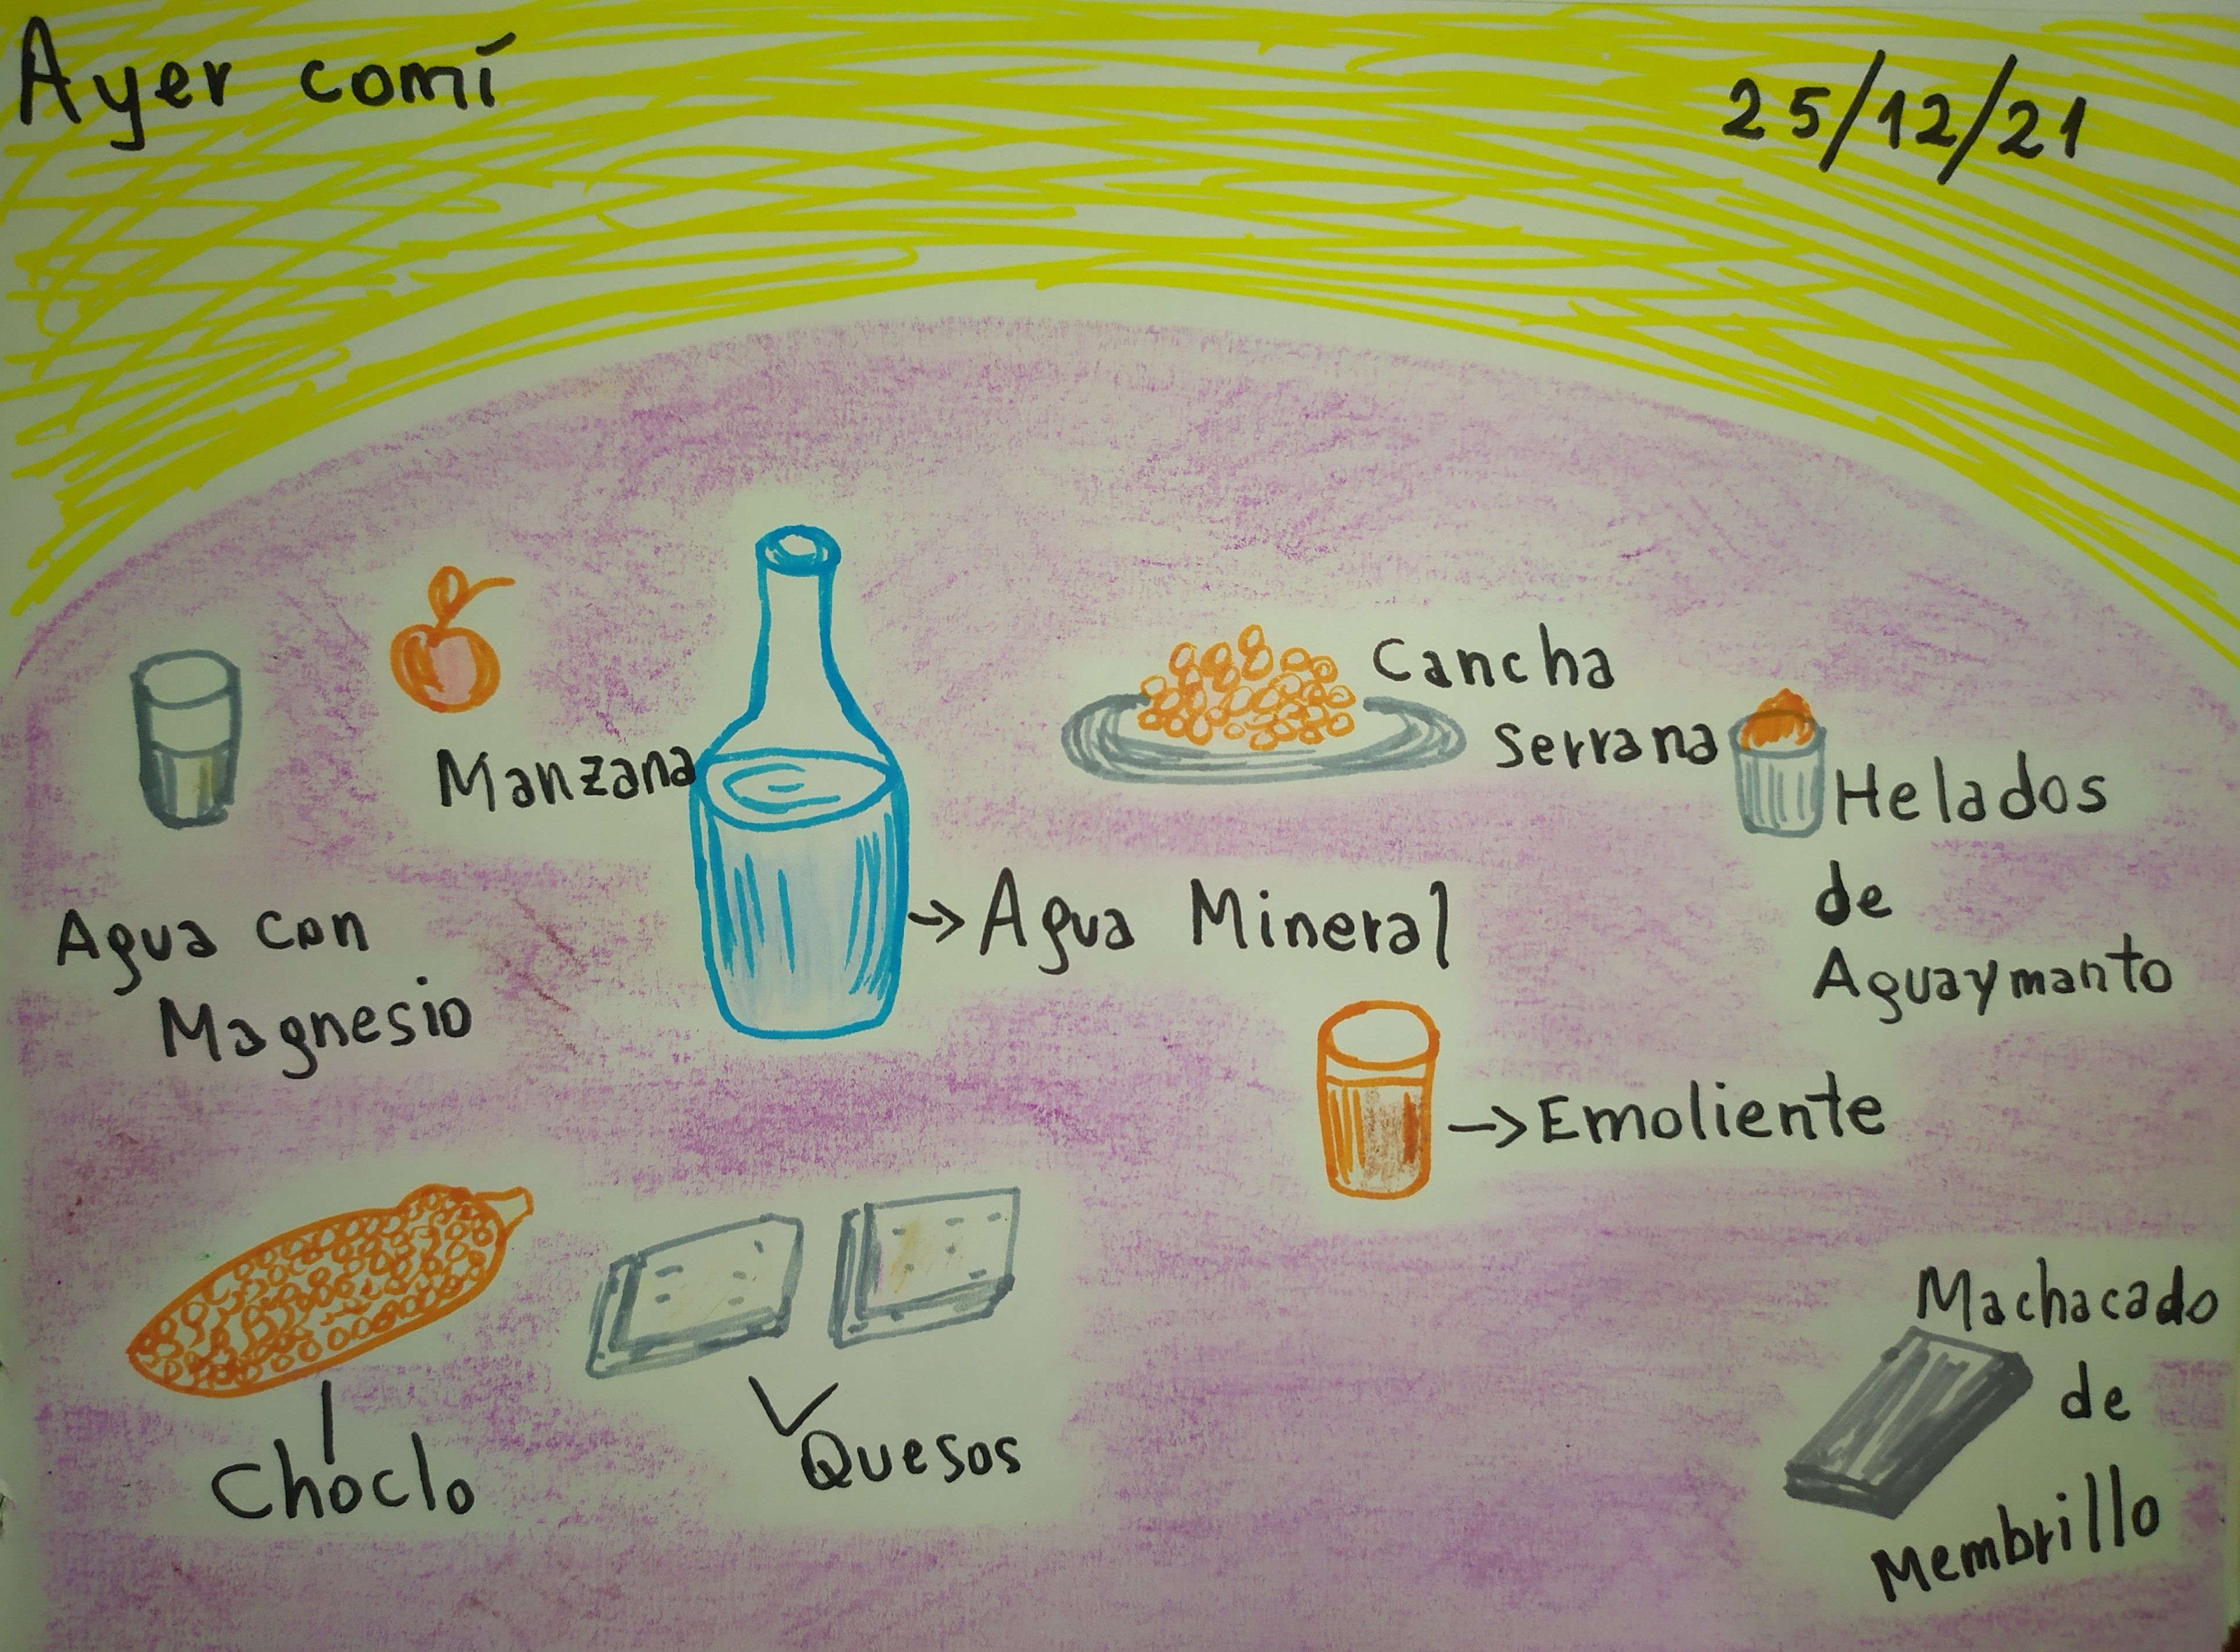 Ayer comí
25/12/21
Manzana
Agua con
Magnesio
→ Agua Mineral
Cancha
Serrana
Helados
de
Aguaymanto
→ Emoliente
Choclo
Quesos
Machacado
de
Membrillo